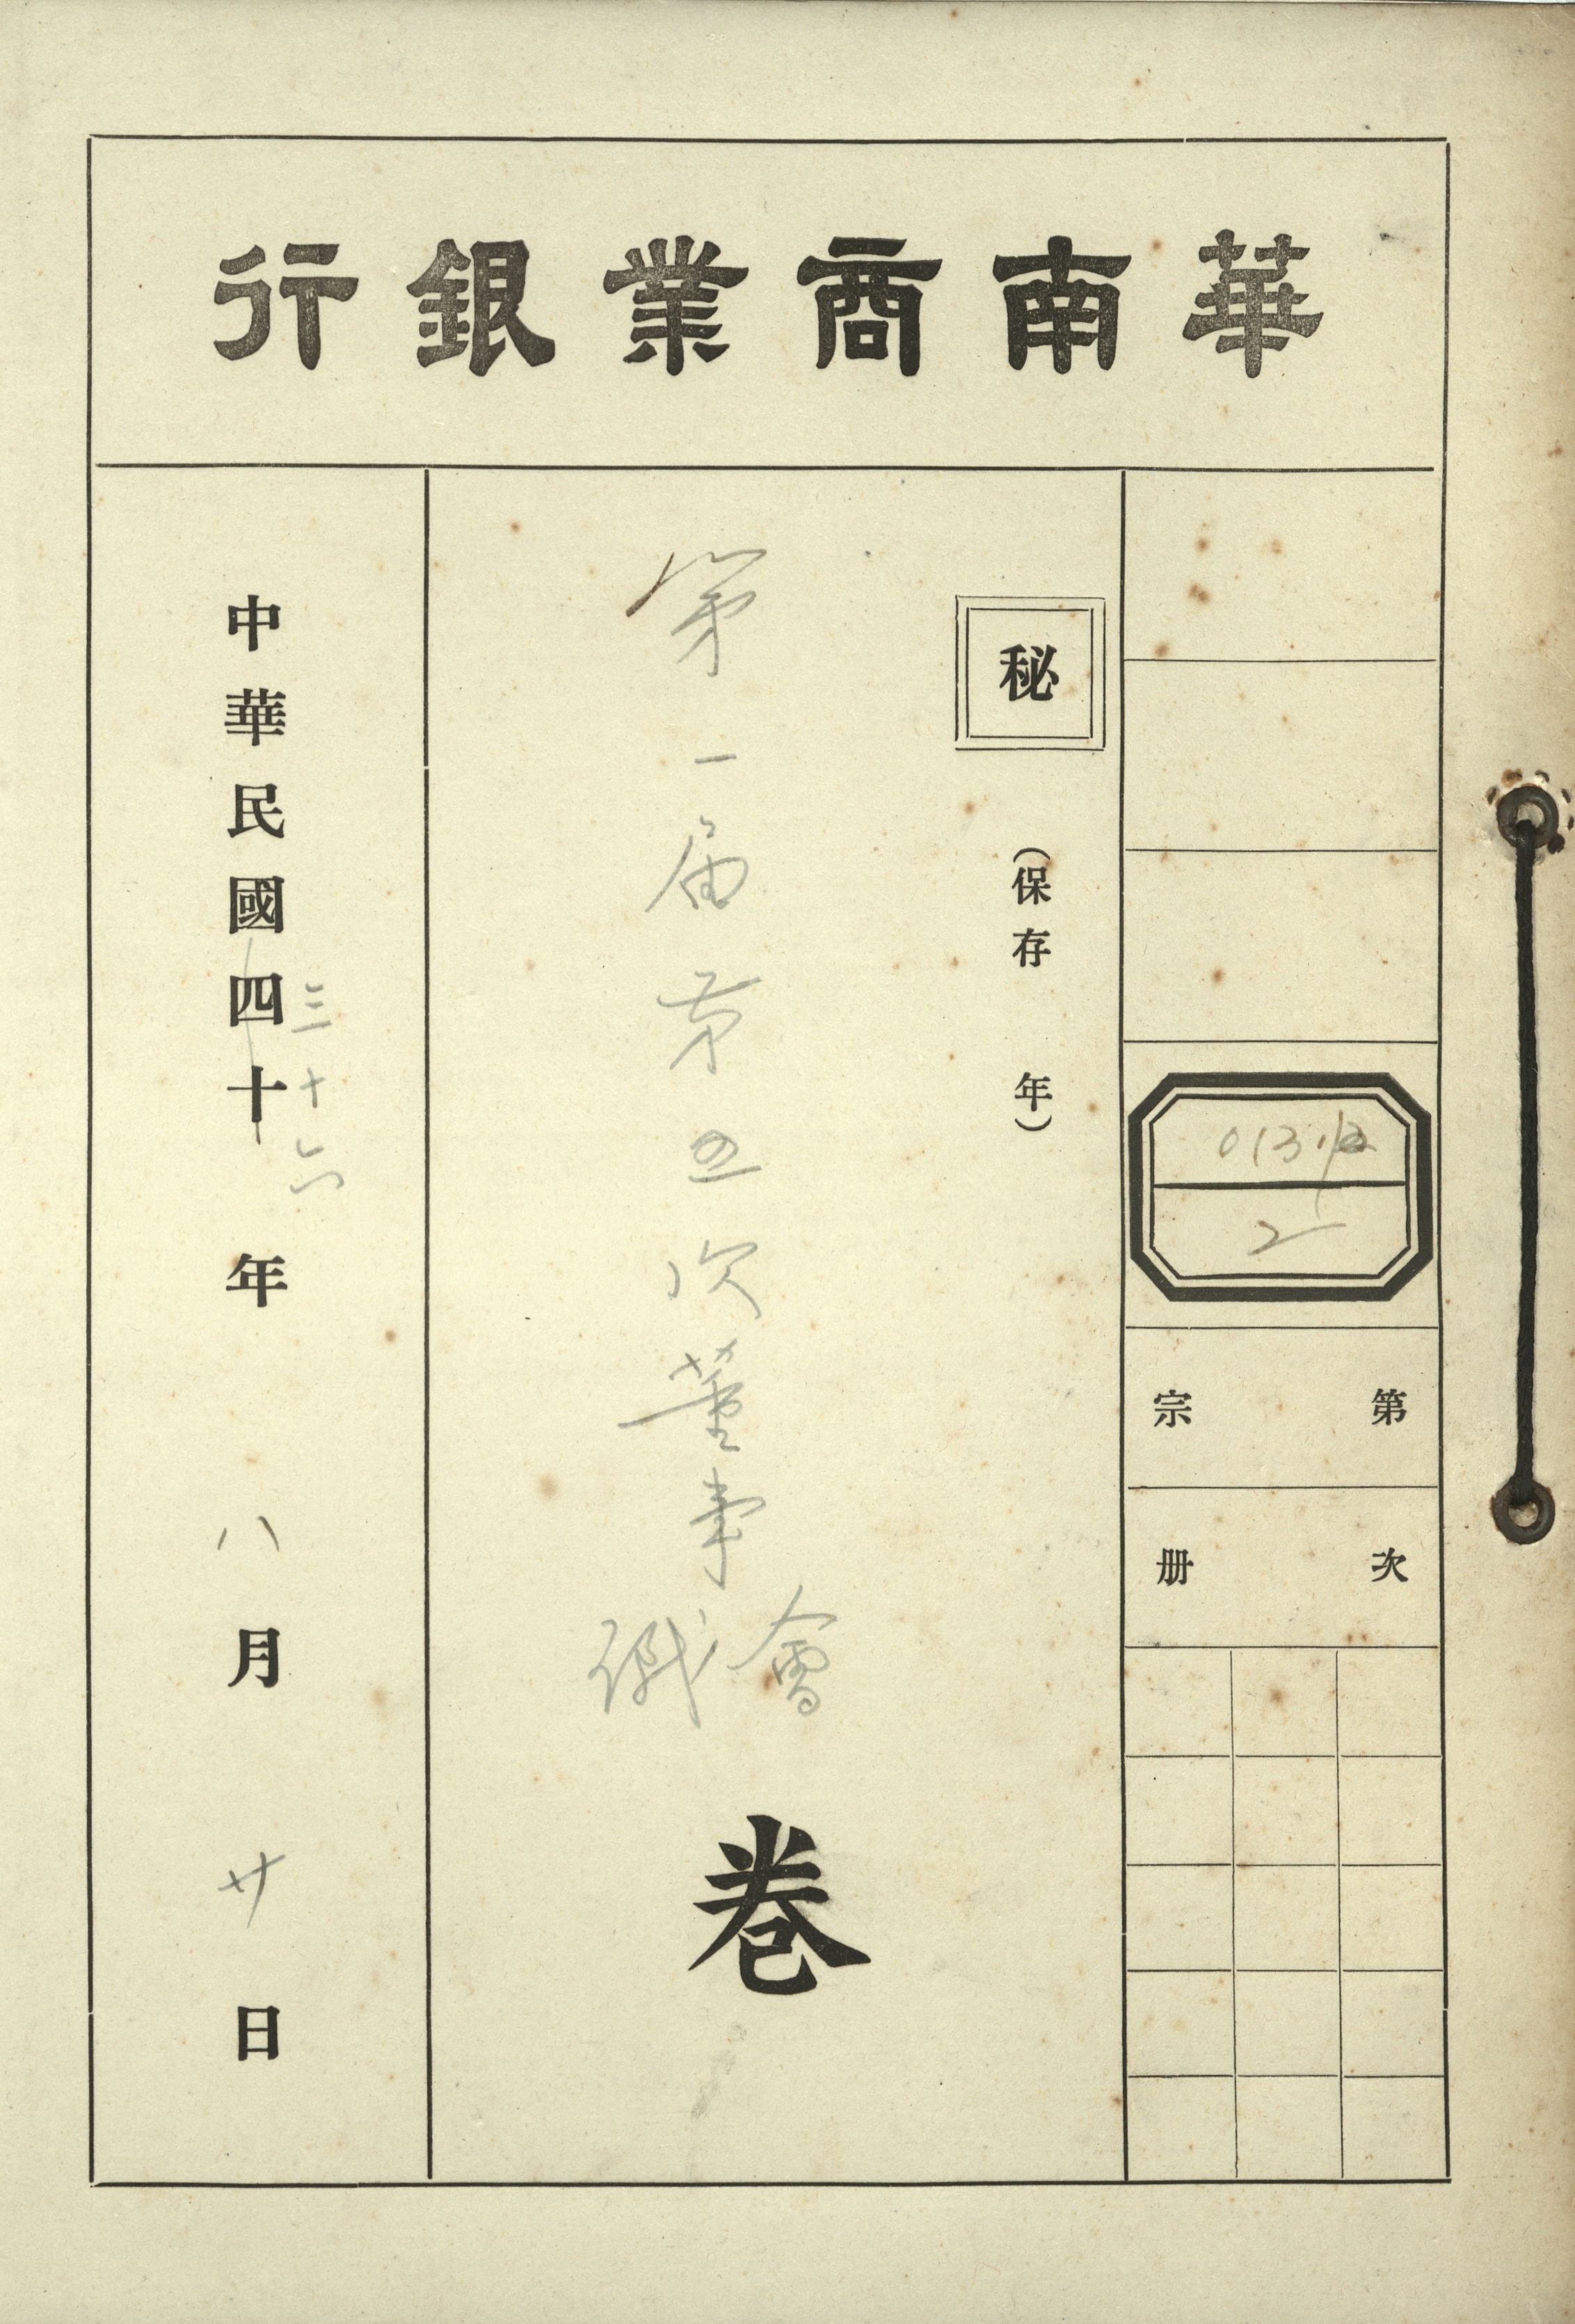 華南商業銀行
第
宗
次
册
秘
(保存 年)
第一届第四次董事會
卷
中華民國四十年八月廿日
三十六
2